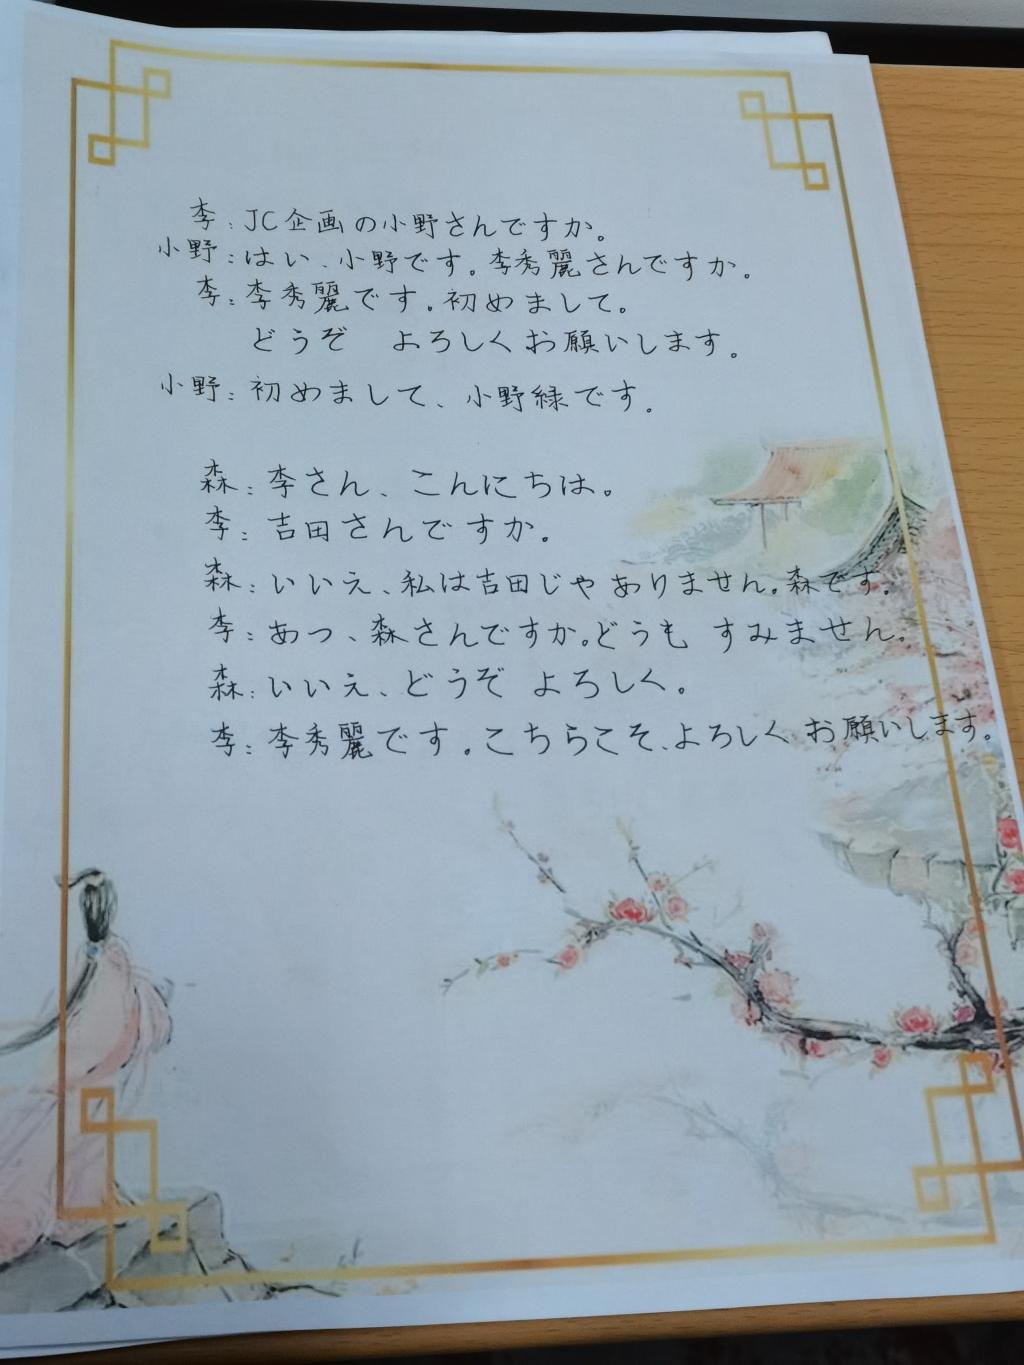 李：JC企画の小野さんですか。
小野：はい、小野です。李秀麗さんですか。
李：李秀麗です。初めまして。
どうぞ　よろしくお願いします。
小野：初めまして、小野緑です。
森：李さん、こんにちは。
李：吉田さんですか。
森：いいえ、私は吉田じゃ ありません。森です。
李：あっ、森さんですか。どうも すみません。
森：いいえ、どうぞ よろしく。
李：李秀麗です。こちらこそ、よろしく お願いします。